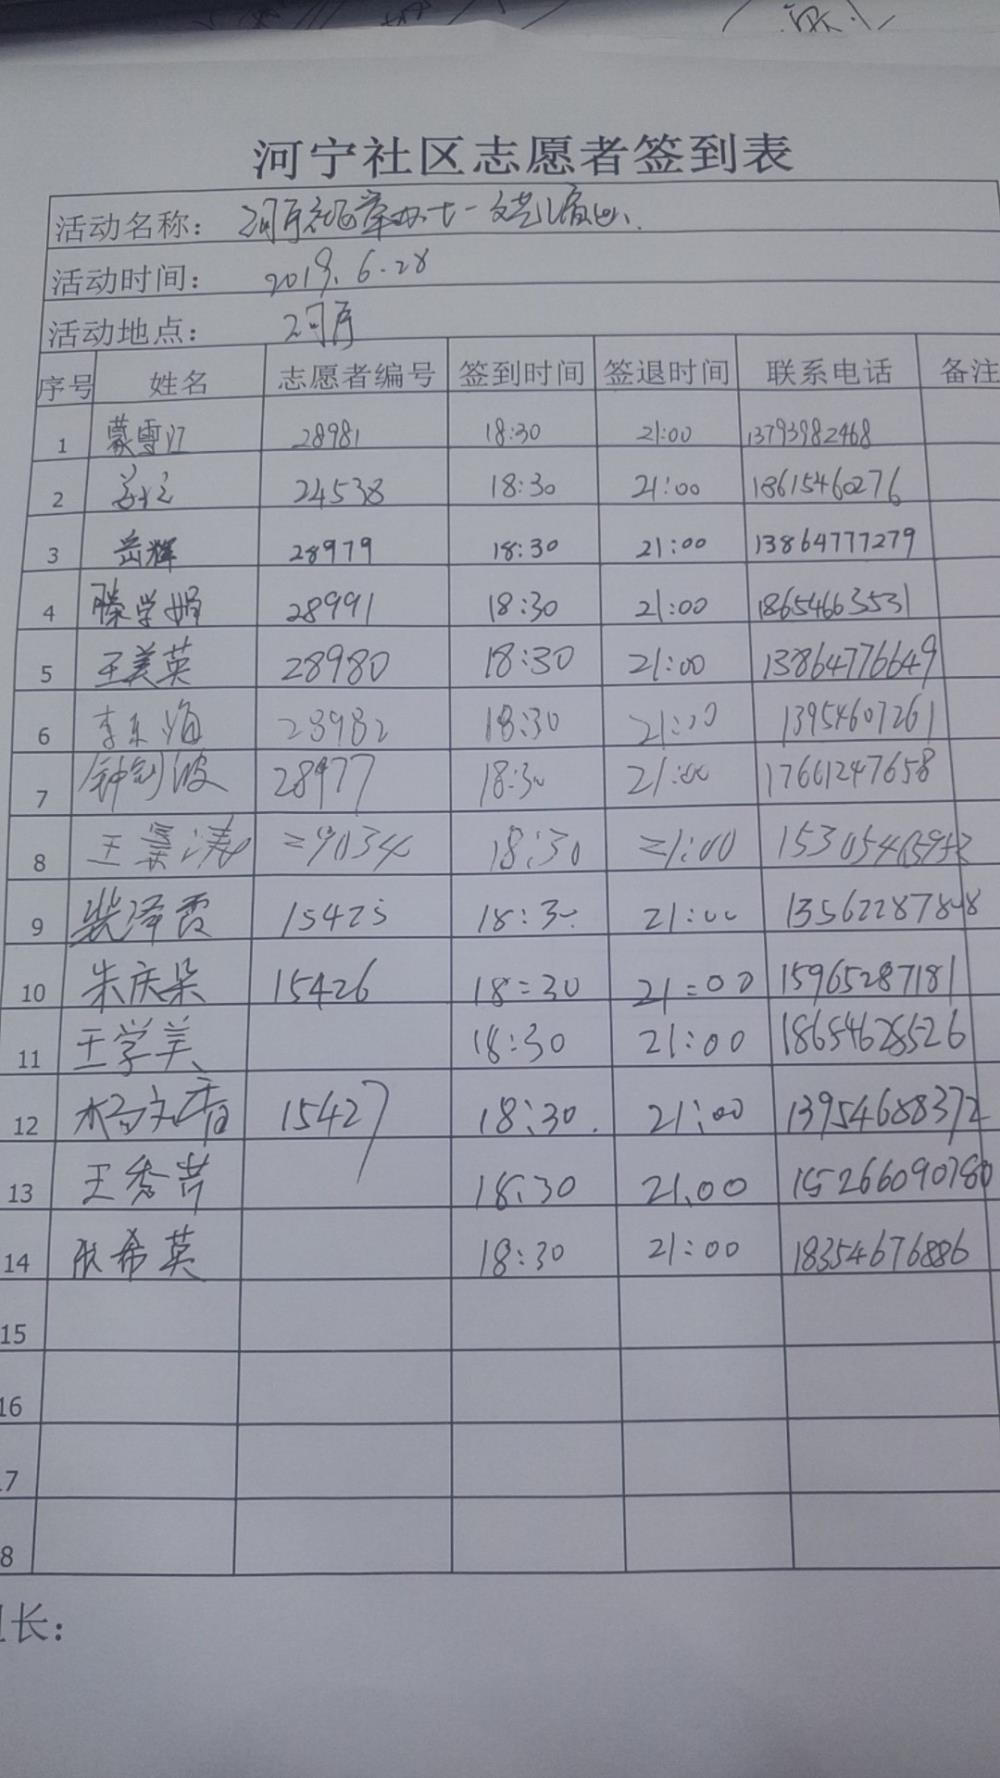 河宁社区志愿者签到表
活动名称：
活动时间： 2019.6.28
活动地点：
序号 姓名 志愿者编号 签到时间 签退时间 联系电话 备注
1 蒙雪江 28981 18:30 21:00 13793982468
2 24538 18:30 21:00 18615460276
3 岳辉 28979 18:30 21:00 13864777279
4 滕学娟 28991 18:30 21:00 18654663531
5 王美英 28980 18:30 21:00 13864776649
6 李东海 28982 18:30 21:00 13954607261
7 钟剑波 28977 18:30 21:00 17661247658
8 王景涛 29034 18:30 21:00
9 裴泽霞 15425 18:30 21:00
10 朱庆朵 15426 18:30 21:00 15965287181
11 王学美 18:30 21:00 18654628526
12 15427 18:30 21:00 13954688372
13 王秀芹 18:30 21:00 15266090780
14 耿希英 18:30 21:00 18354676886
15
16
17
18
长：